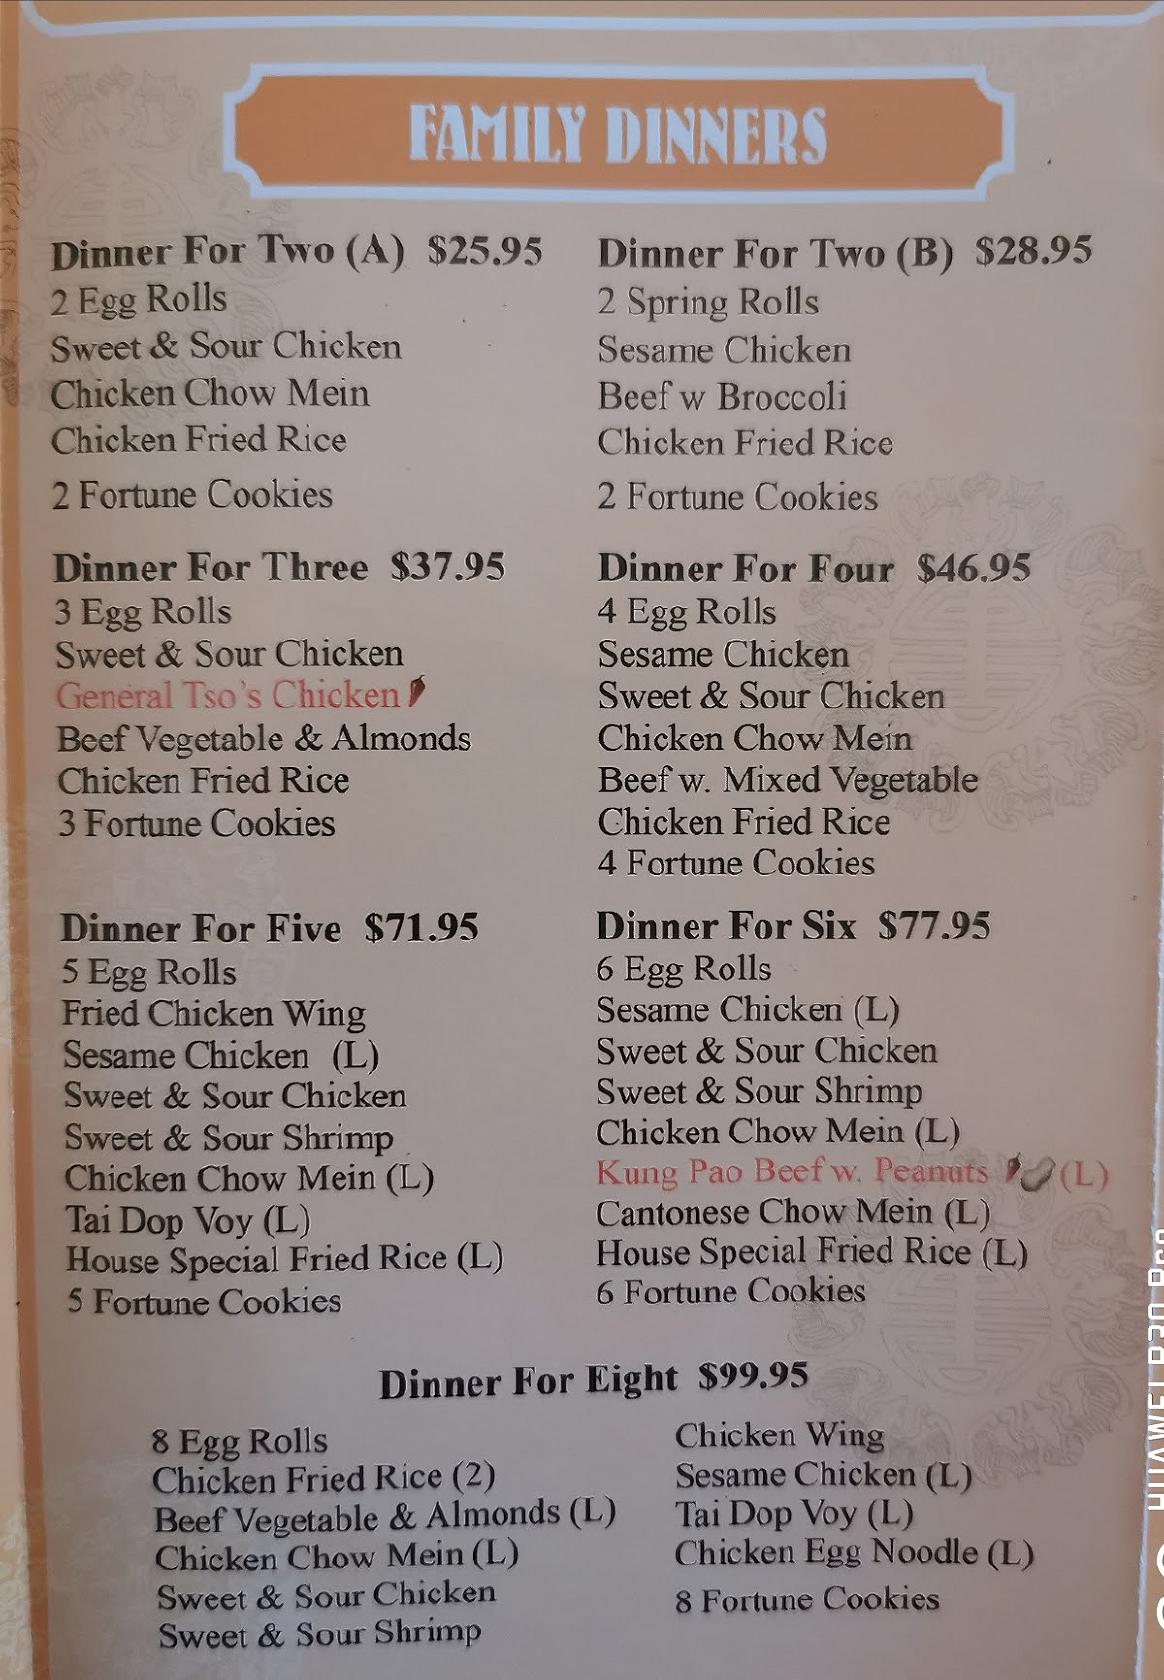 FAMILY DINNERS
Dinner For Two (A) $25.95
2 Egg Rolls
Sweet & Sour Chicken
Chicken Chow Mein
Chicken Fried Rice
2 Fortune Cookies
Dinner For Two (B) $28.95
2 Spring Rolls
Sesame Chicken
Beef w Broccoli
Chicken Fried Rice
2 Fortune Cookies
Dinner For Three $37.95
3 Egg Rolls
Sweet & Sour Chicken
General Tso's Chicken
Beef Vegetable & Almonds
Chicken Fried Rice
3 Fortune Cookies
Dinner For Four $46.95
4 Egg Rolls
Sesame Chicken
Sweet & Sour Chicken
Chicken Chow Mein
Beef w. Mixed Vegetable
Chicken Fried Rice
4 Fortune Cookies
Dinner For Five $71.95
5 Egg Rolls
Fried Chicken Wing
Sesame Chicken (L)
Sweet & Sour Chicken
Sweet & Sour Shrimp
Chicken Chow Mein (L)
Tai Dop Voy (L)
House Special Fried Rice (L)
5 Fortune Cookies
Dinner For Six $77.95
6 Egg Rolls
Sesame Chicken (L)
Sweet & Sour Chicken
Sweet & Sour Shrimp
Chicken Chow Mein (L)
Kung Pao Beef w. Peanuts (L)
Cantonese Chow Mein (L)
House Special Fried Rice (L)
6 Fortune Cookies
Dinner For Eight $99.95
8 Egg Rolls
Chicken Fried Rice (2)
Beef Vegetable & Almonds (L)
Chicken Chow Mein (L)
Sweet & Sour Chicken
Sweet & Sour Shrimp
Chicken Wing
Sesame Chicken (L)
Tai Dop Voy (L)
Chicken Egg Noodle (L)
8 Fortune Cookies
HUAWEI P30